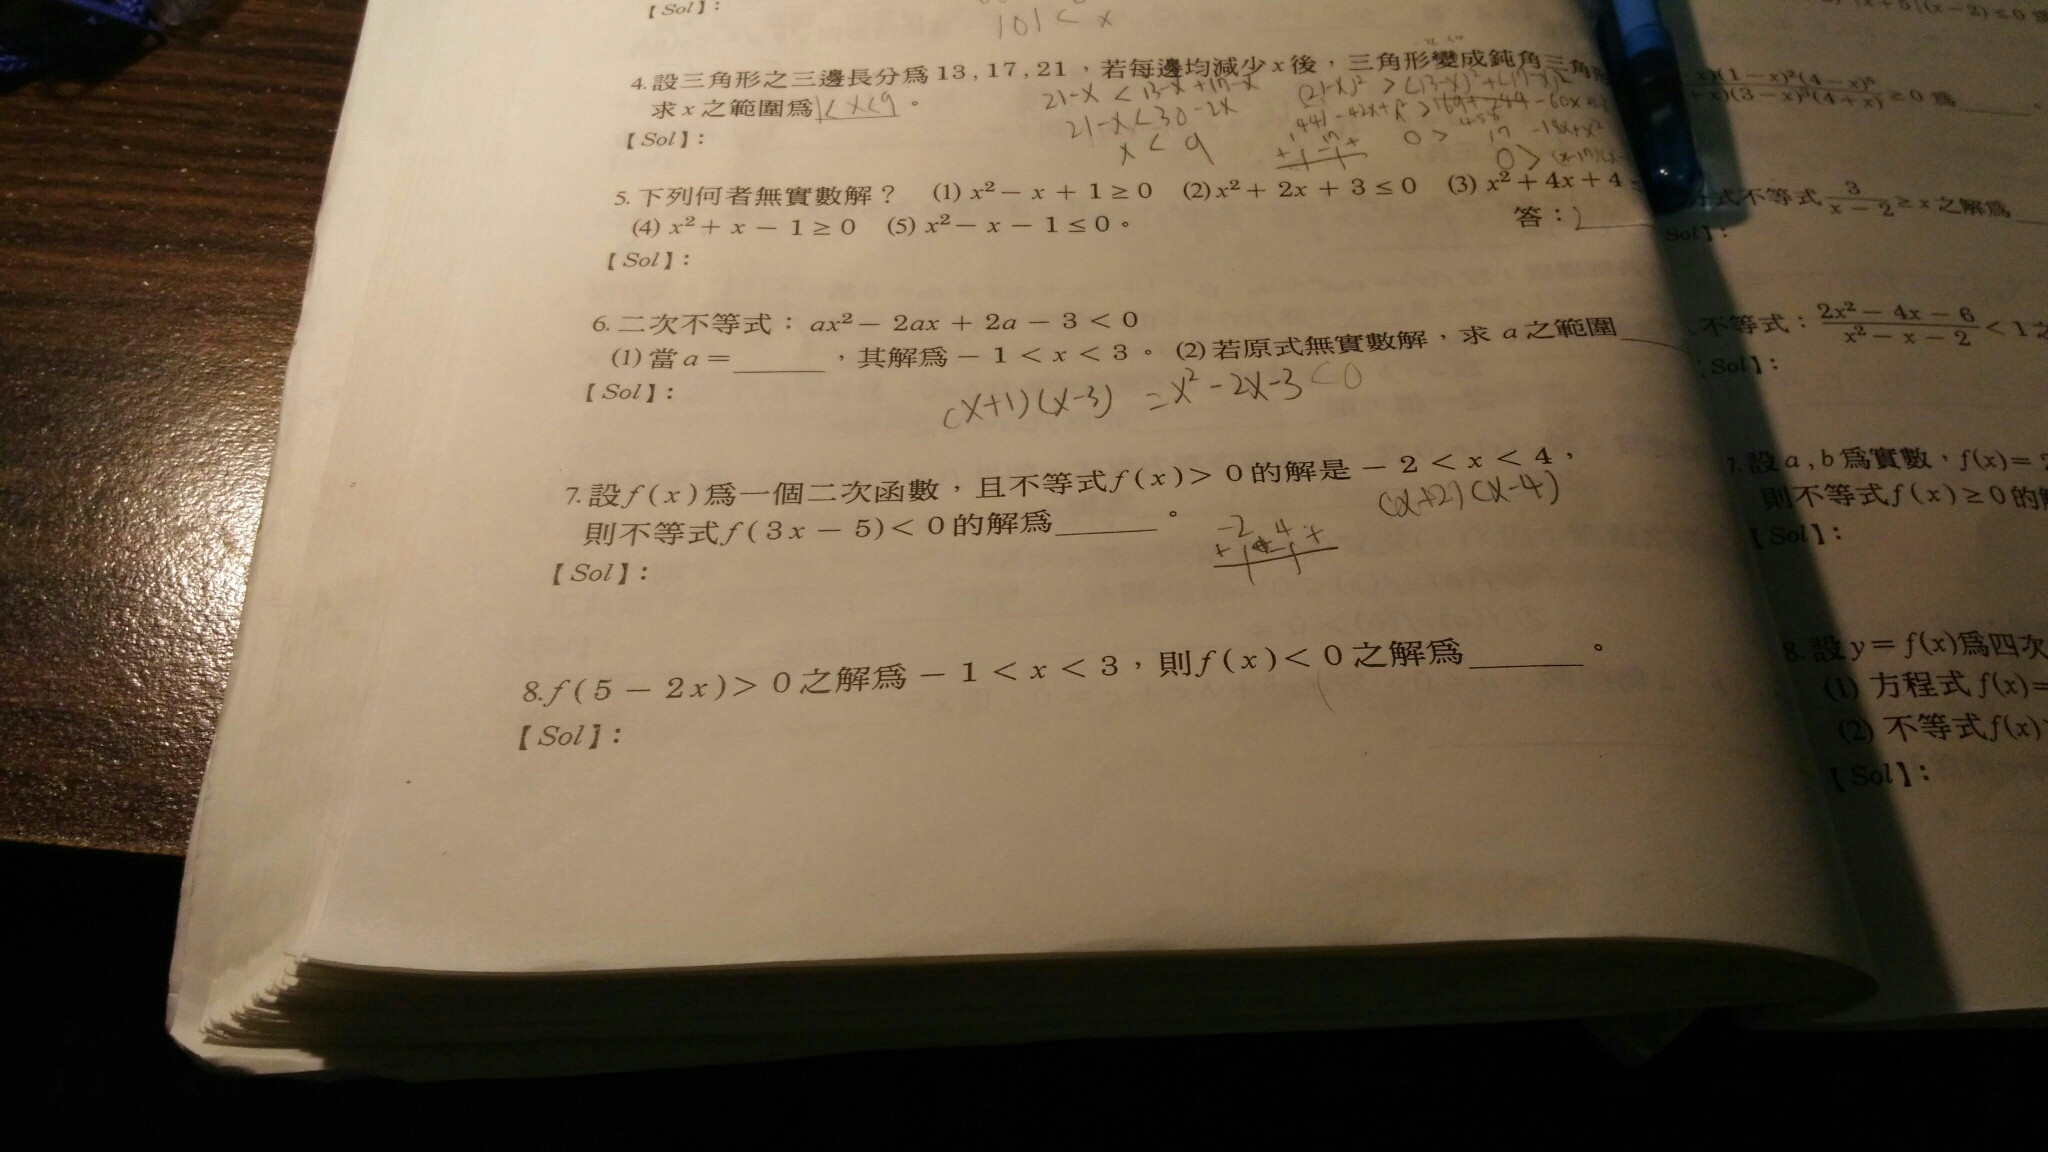 【Sol】：
101 < x
4. 設三角形之三邊長分爲 13 , 17 , 21 ，若每邊均減少 x 後，三角形變成鈍角三角形
求 x 之範圍爲 1< x<9 。
21-x < 13-x + 17-x
21-x < 30-2x
x < 9
(21-x)² > (13-x)² + (17-x)²
0 > 17 -18x+x²
【Sol】：
5. 下列何者無實數解？ (1) x² − x + 1 ≥ 0 (2) x² + 2x + 3 ≤ 0 (3) x² + 4x + 4
(4) x² + x − 1 ≥ 0 (5) x² − x − 1 ≤ 0 。 答：2
【Sol】：
6. 二次不等式： ax² − 2ax + 2a − 3 < 0
(1) 當 a = ______ ，其解爲 − 1 < x < 3 。 (2) 若原式無實數解，求 a 之範圍
【Sol】：
(x+1)(x-3) = x² - 2x - 3 < 0
7. 設 f ( x ) 爲一個二次函數，且不等式 f ( x ) > 0 的解是 − 2 < x < 4 ，
則不等式 f ( 3x − 5 ) < 0 的解爲 ______ 。
(x+2)(x-4)
-2 4
+ - +
【Sol】：
8. f ( 5 − 2x ) > 0 之解爲 − 1 < x < 3 ，則 f ( x ) < 0 之解爲 ______ 。
【Sol】：
x + 5 | (x − 2) ≤ 0
x)(1 − x)²(4 − x)
+ x)(3 − x)³(4 + x) ≥ 0 爲 ______ 。
式不等式 3/(x − 2) ≥ x 之解爲
Sol】：
不等式： (2x² − 4x − 6)/(x² − x − 2) < 1 之
【Sol】：
7. 設 a , b 爲實數，f(x) =
則不等式 f ( x ) ≥ 0 的
【Sol】：
8. 設 y = f(x) 爲四次
(1) 方程式 f(x) =
(2) 不等式 f(x)
【Sol】：